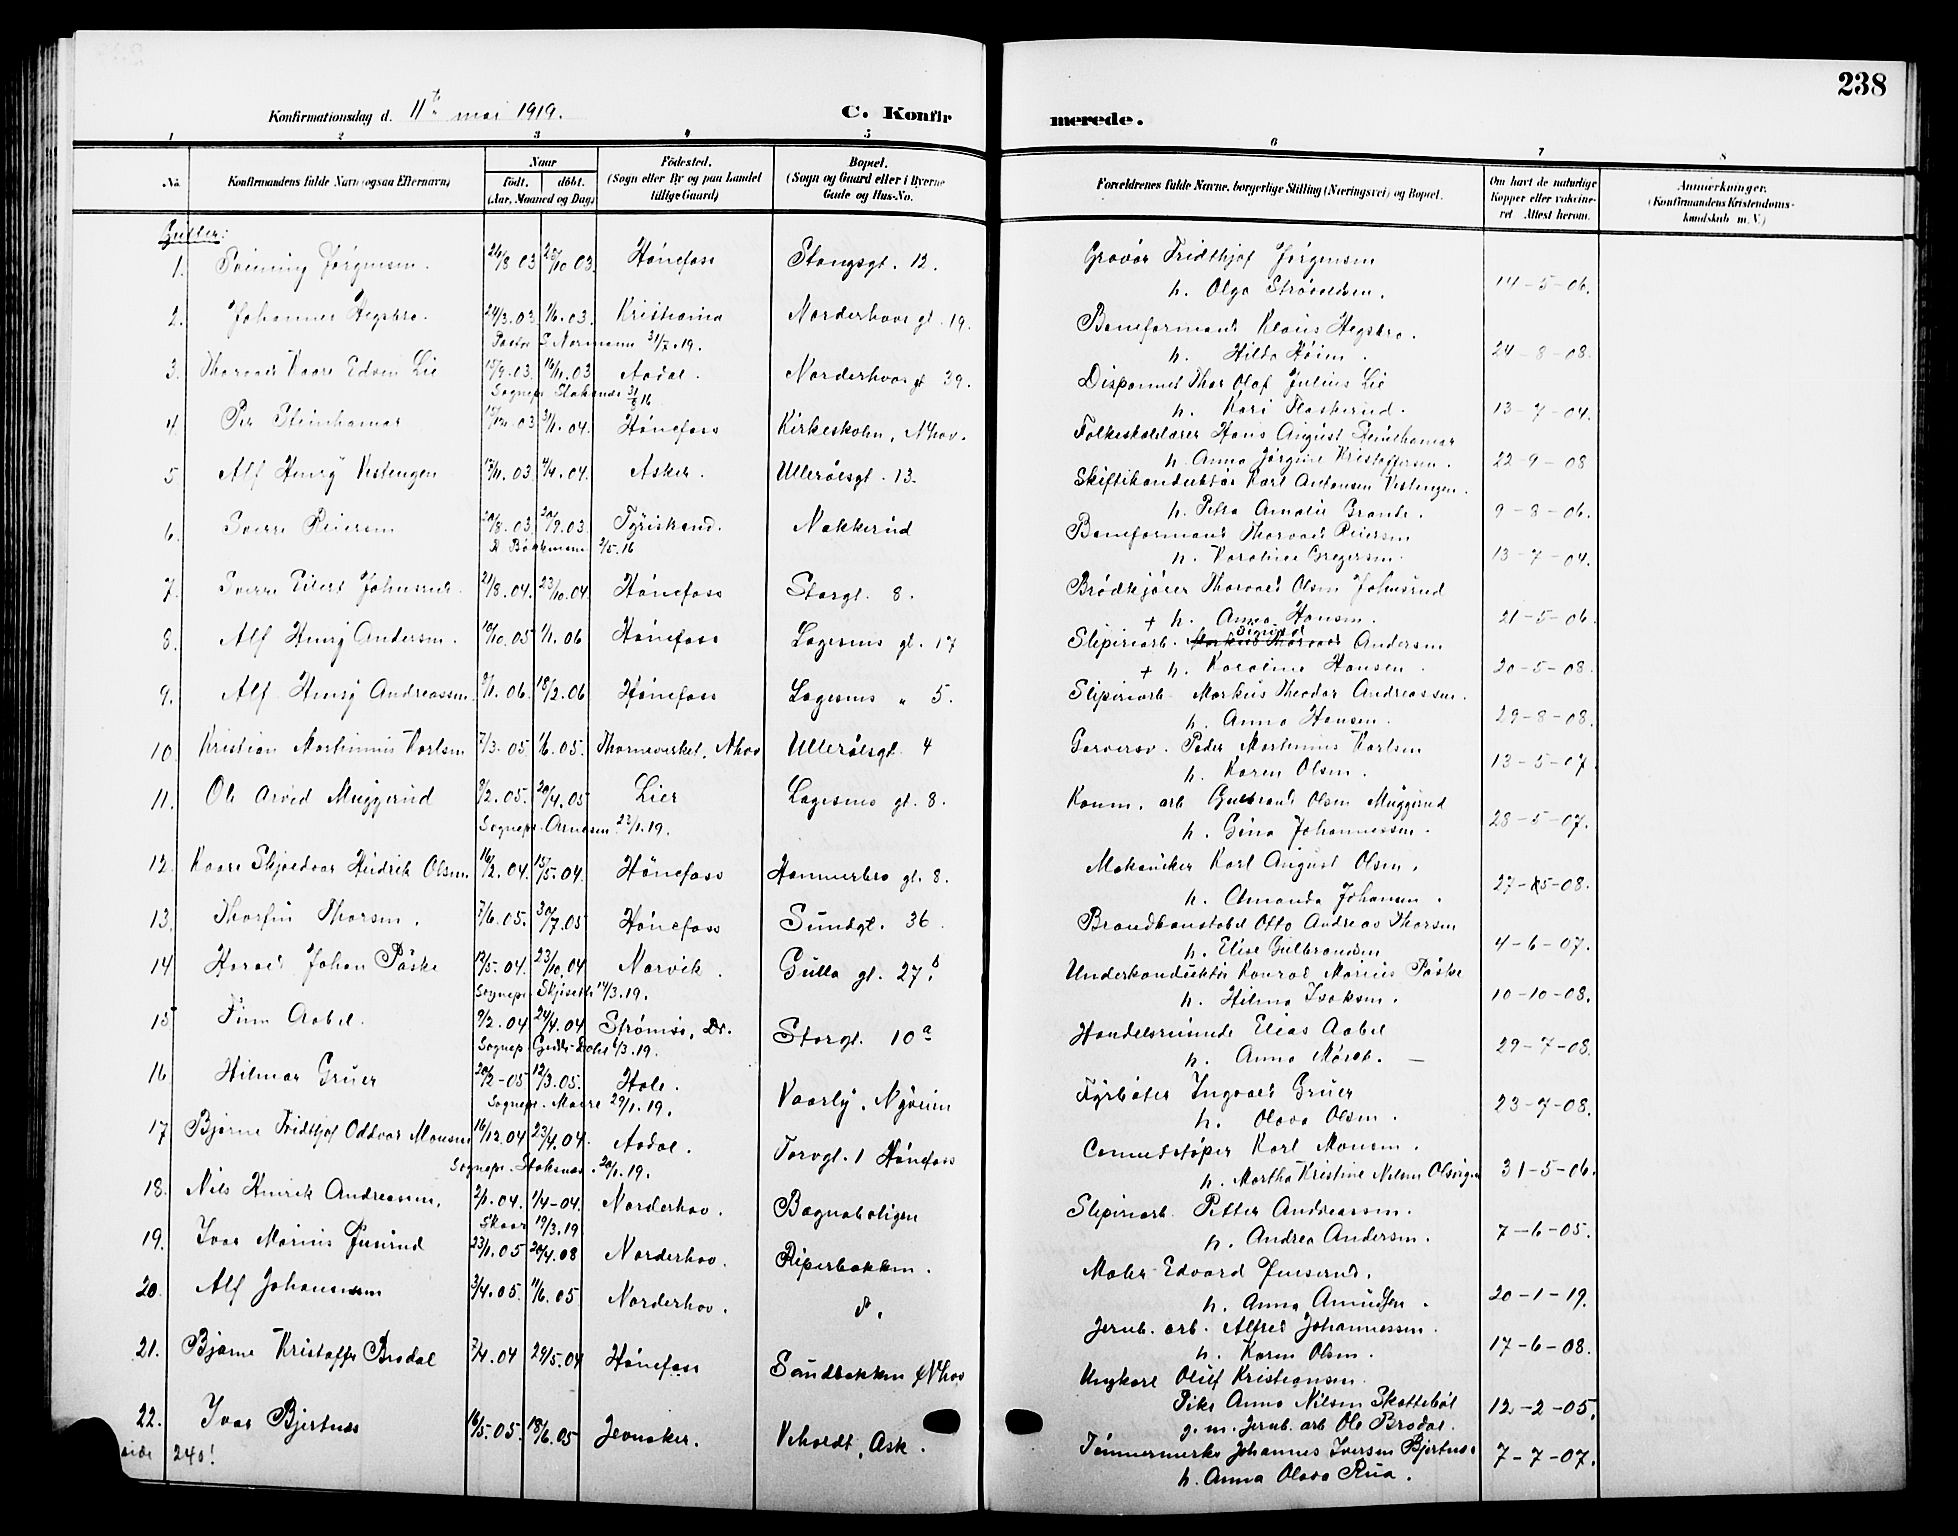 238
Konfirmationsdag d. 11te mai 1919.
C. Konfirmerede.
1 2 3 4 5 6 7 8
No.
Konfirmandens fulde Navn (ogsaa Efternavn)
Naar
født. døbt.
(Aar, Maaned og Dag)
Fødested.
(Sogn eller By og paa Landet
tillige Gaard)
Bopæl.
(Sogn og Gaard eller i Byerne
Gade og Hus-No.
Forældrenes fulde Navne, borgerlige Stilling (Næringsvei) og Bopæl.
Om havt de naturlige
Kopper eller vakcine-
ret Attest herom.
Anmærkninger.
(Konfirmandens Kristendoms-
kundskab m. V.)
Gutter:
1. Jørgensen. 26/8 03 25/10 03. Hønefoss Stangsgt. 12. Gravør Fridthjof Jørgensen
h. Olga 14-5-06.
2. Johannes Hegsbro. 24/3.03. 1/6.03. Kristiania Norderhovs gt. 19. Baneformand Klaus Hegsbro.
Pastor Normann 31/7.19. h. Hilda Høien. 24-8-08.
3. Thorvald Kaare Edvin Lie 15/9.03. 15/11.03 Aadal. Norderhovs gt 39. Disponent Thor Olaf Julius Lie
Sognepr. Stoknæs 31/8 16 h. Kari Flaskerud. 13-7-04.
4. Per Steinhamar 17/12.03 31/1.04. Hønefoss Kirkeskolen, Nhov. Folkeskolelærer Hans August Steinhamar
h. Anna Jørgine Kristoffersen. 22-9-08
5 Alf Henry Vestengen 17/11.03 4/4.04. Asker. Ullerålsgt. 13. Skiftekonduktør Karl Antonsen Vestengen.
h. Petra Amalie Brande. 9-8-06.
6. Sverre Reiersen 20/8.03. 20/9.03. Tyristrand. Nakkerud Baneformand Thorvald Reiersen
Bachmann 2/5.16 h. Karoline Gregersen. 13-7-04.
7. Sverre Eilert Johnsrud. 21/8.04. 23/10.04. Hønefoss Storgt. 8. Brødkjører Thorvald Olsen Johnsrud
+ h. Anna Hansen. 21-5-06.
8. Alf Henry Andersen. 10/10.05 1/1.06 Hønefoss Lagesens gt. 17 Sliperiarb. Sigurd Andersen
+ h. Karoline Hansen. 20-5-08.
9. Alf Henry Andreassen. 9/1.06. 18/2.06 Hønefoss Lagesens " 5. Sliperiarb. Markus Theodor Andreassen.
h. Anna Hansen. 29-8-08.
10. Kristian Martinius Karlsen 7/3.05 1/6.05. Thorneverket, Nhov Ullerålsgt. 4 Garversv. Peder Martinius Karlsen
h. Karen Olsen. 13-5-07.
11. Ole Arvid Muggerud 9/2.05. 20/4.05 Lier Lagesens gt. 8. Komm. arb. Gulbrand Olsen Muggerud
Sognepr. Arnesen 23/1.19. h. Gina Johannessen. 28-5-07.
12. Kaare Skjoldvar Hendrik Olsen 16/2.04. 15/5.04. Hønefoss Hammerbro gt. 8. Mekaniker Karl August Olsen.
h. Amanda Johansen. 27-5-08.
13. Thorfin Thorsen. 7/6.05. 30/7.05 Hønefoss Sundgt. 36. Brandkonstabel Otto Andreas Thorsen
h. Elise Gulbrandsen 4-6-07.
14 Harald Johan Påske 12/5.04. 23/10.04 Narvik. Gulla gt. 27b Underkonduktør Konrad Marius Påske
Sognepr. 14/3.19. h. Hilma Isaksen. 10-10-08.
15 Finn Aabel. 9/2.04 24/4.04 Strømsø, Dr. Storgt. 10a Handelsreisende Elias Aabel
Sognepr. 6/3.19. h. Anna 29-7-08.
16 Hilmar Gruer 20/2-05 12/3.05. Hole. Vaarly, Nyveien Fyrbøter Ingvald Gruer
Sognepr. 29/1.19. h. Olava Olsen. 23-7-08.
17 Bjarne Fridthjof Oddvar Monsen 16/12.04 23/4.04. Aadal. Torvgt. 1 Hønefoss Cementstøper Karl Monsen.
Sognepr. Stoknæs. 20/1.19. h. Martha Kristine Nilsen 31-5-06.
18. Nils Henrik Andreassen. 2/1.04. 1/4-04. Norderhov. Bagnaboligen Sliperiarb. Petter Andreassen.
Skaar 19/3.19 h. Andrea Andersen. 7-6-05.
19. Ivar Marius 23/1.05 20/4.08 Norderhov. Riperbakken. Maler Edvard
h. Anna 20-1-19.
20. Alf Johannessen 3/4.05. 11/6.05 Norderhov. do. Jernb. arb. Alfred Johannessen.
h. Karen Olsen. 17-6-08.
21. Bjarne Kristoffer Brodal 7/4.04 29/5.04 Hønefoss Sandbakken Nhov Ungkarl Oluf Kristiansen.
Pike Anna Nilsen Skottebøl 12-2-05.
g. m. Jernb. arb Ole Brodal.
22. Ivar Bjertnes 16/5.05. 18/6.05 Jevnaker. Veholdt, Ask. Tømmermerker Johannes Iversen Bjertnes
h. Anna Olava Rua. 7-7-07.
240!